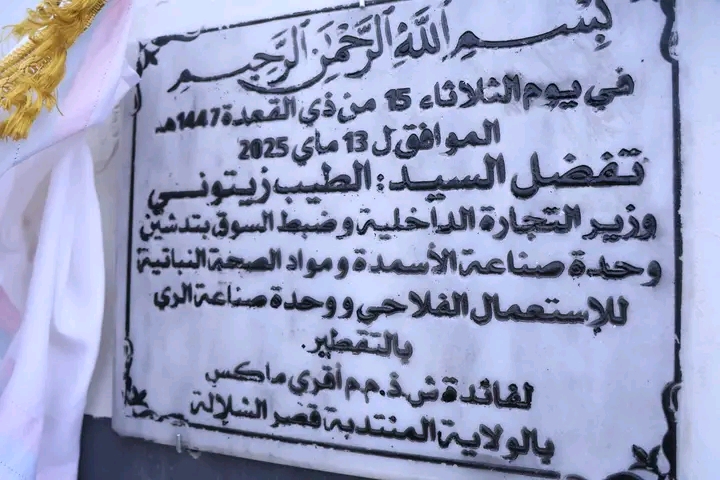 بسم الله الرحمن الرحيم
في يوم الثلاثاء 15 من ذي القعدة 1447هـ
الموافق ل 13 ماي 2025
تفضل السيد: الطيب زيتوني
وزير التجارة الداخلية و ضبط السوق بتدشين
وحدة صناعة الأسمدة و مواد الصحة النباتية
للإستعمال الفلاحي و وحدة صناعة الري
بالتقطير.
لفائدة ش.ذ.م.م أقري ماكس
بالولاية المنتدبة قصر الشلالة